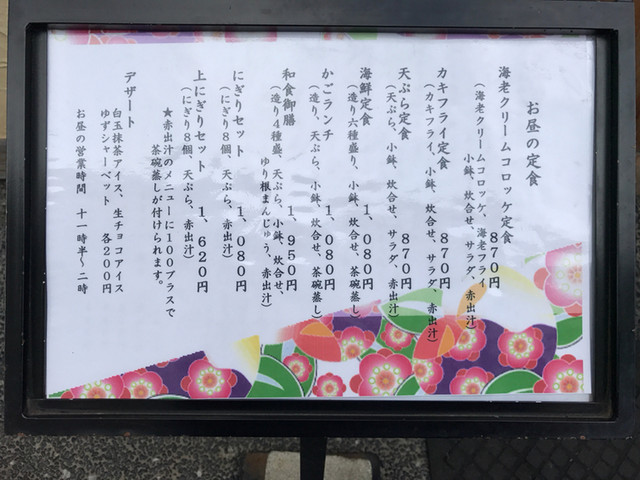 お昼の定食
海老クリームコロッケ定食
870円
(海老クリームコロッケ、海老フライ
小鉢、炊合せ、サラダ、赤出汁)
カキフライ定食
870円
(カキフライ、小鉢、炊合せ、サラダ、赤出汁)
天ぷら定食
870円
(天ぷら、小鉢、炊合せ、サラダ、赤出汁)
海鮮定食
1、080円
(造り六種盛り、小鉢、炊合せ、茶碗蒸し)
かごランチ
1、080円
(造り、天ぷら、小鉢、炊合せ、茶碗蒸し)
和食御膳
1、950円
(造り4種盛、天ぷら、小鉢、炊合せ、
ゆり根まんじゅう、赤出汁)
にぎりセット
1、080円
(にぎり8個、天ぷら、赤出汁)
上にぎりセット
1、620円
(にぎり8個、天ぷら、赤出汁)
★赤出汁のメニューに100プラスで
茶碗蒸しが付けられます。
デザート
白玉抹茶アイス、生チョコアイス
ゆずシャーベット 各200円
お昼の営業時間 十一時半〜二時